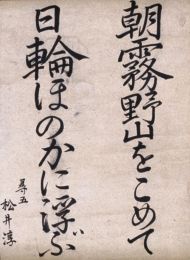 朝霧野山をこめて
日輪ほのかに浮ぶ
尋五 松井淳